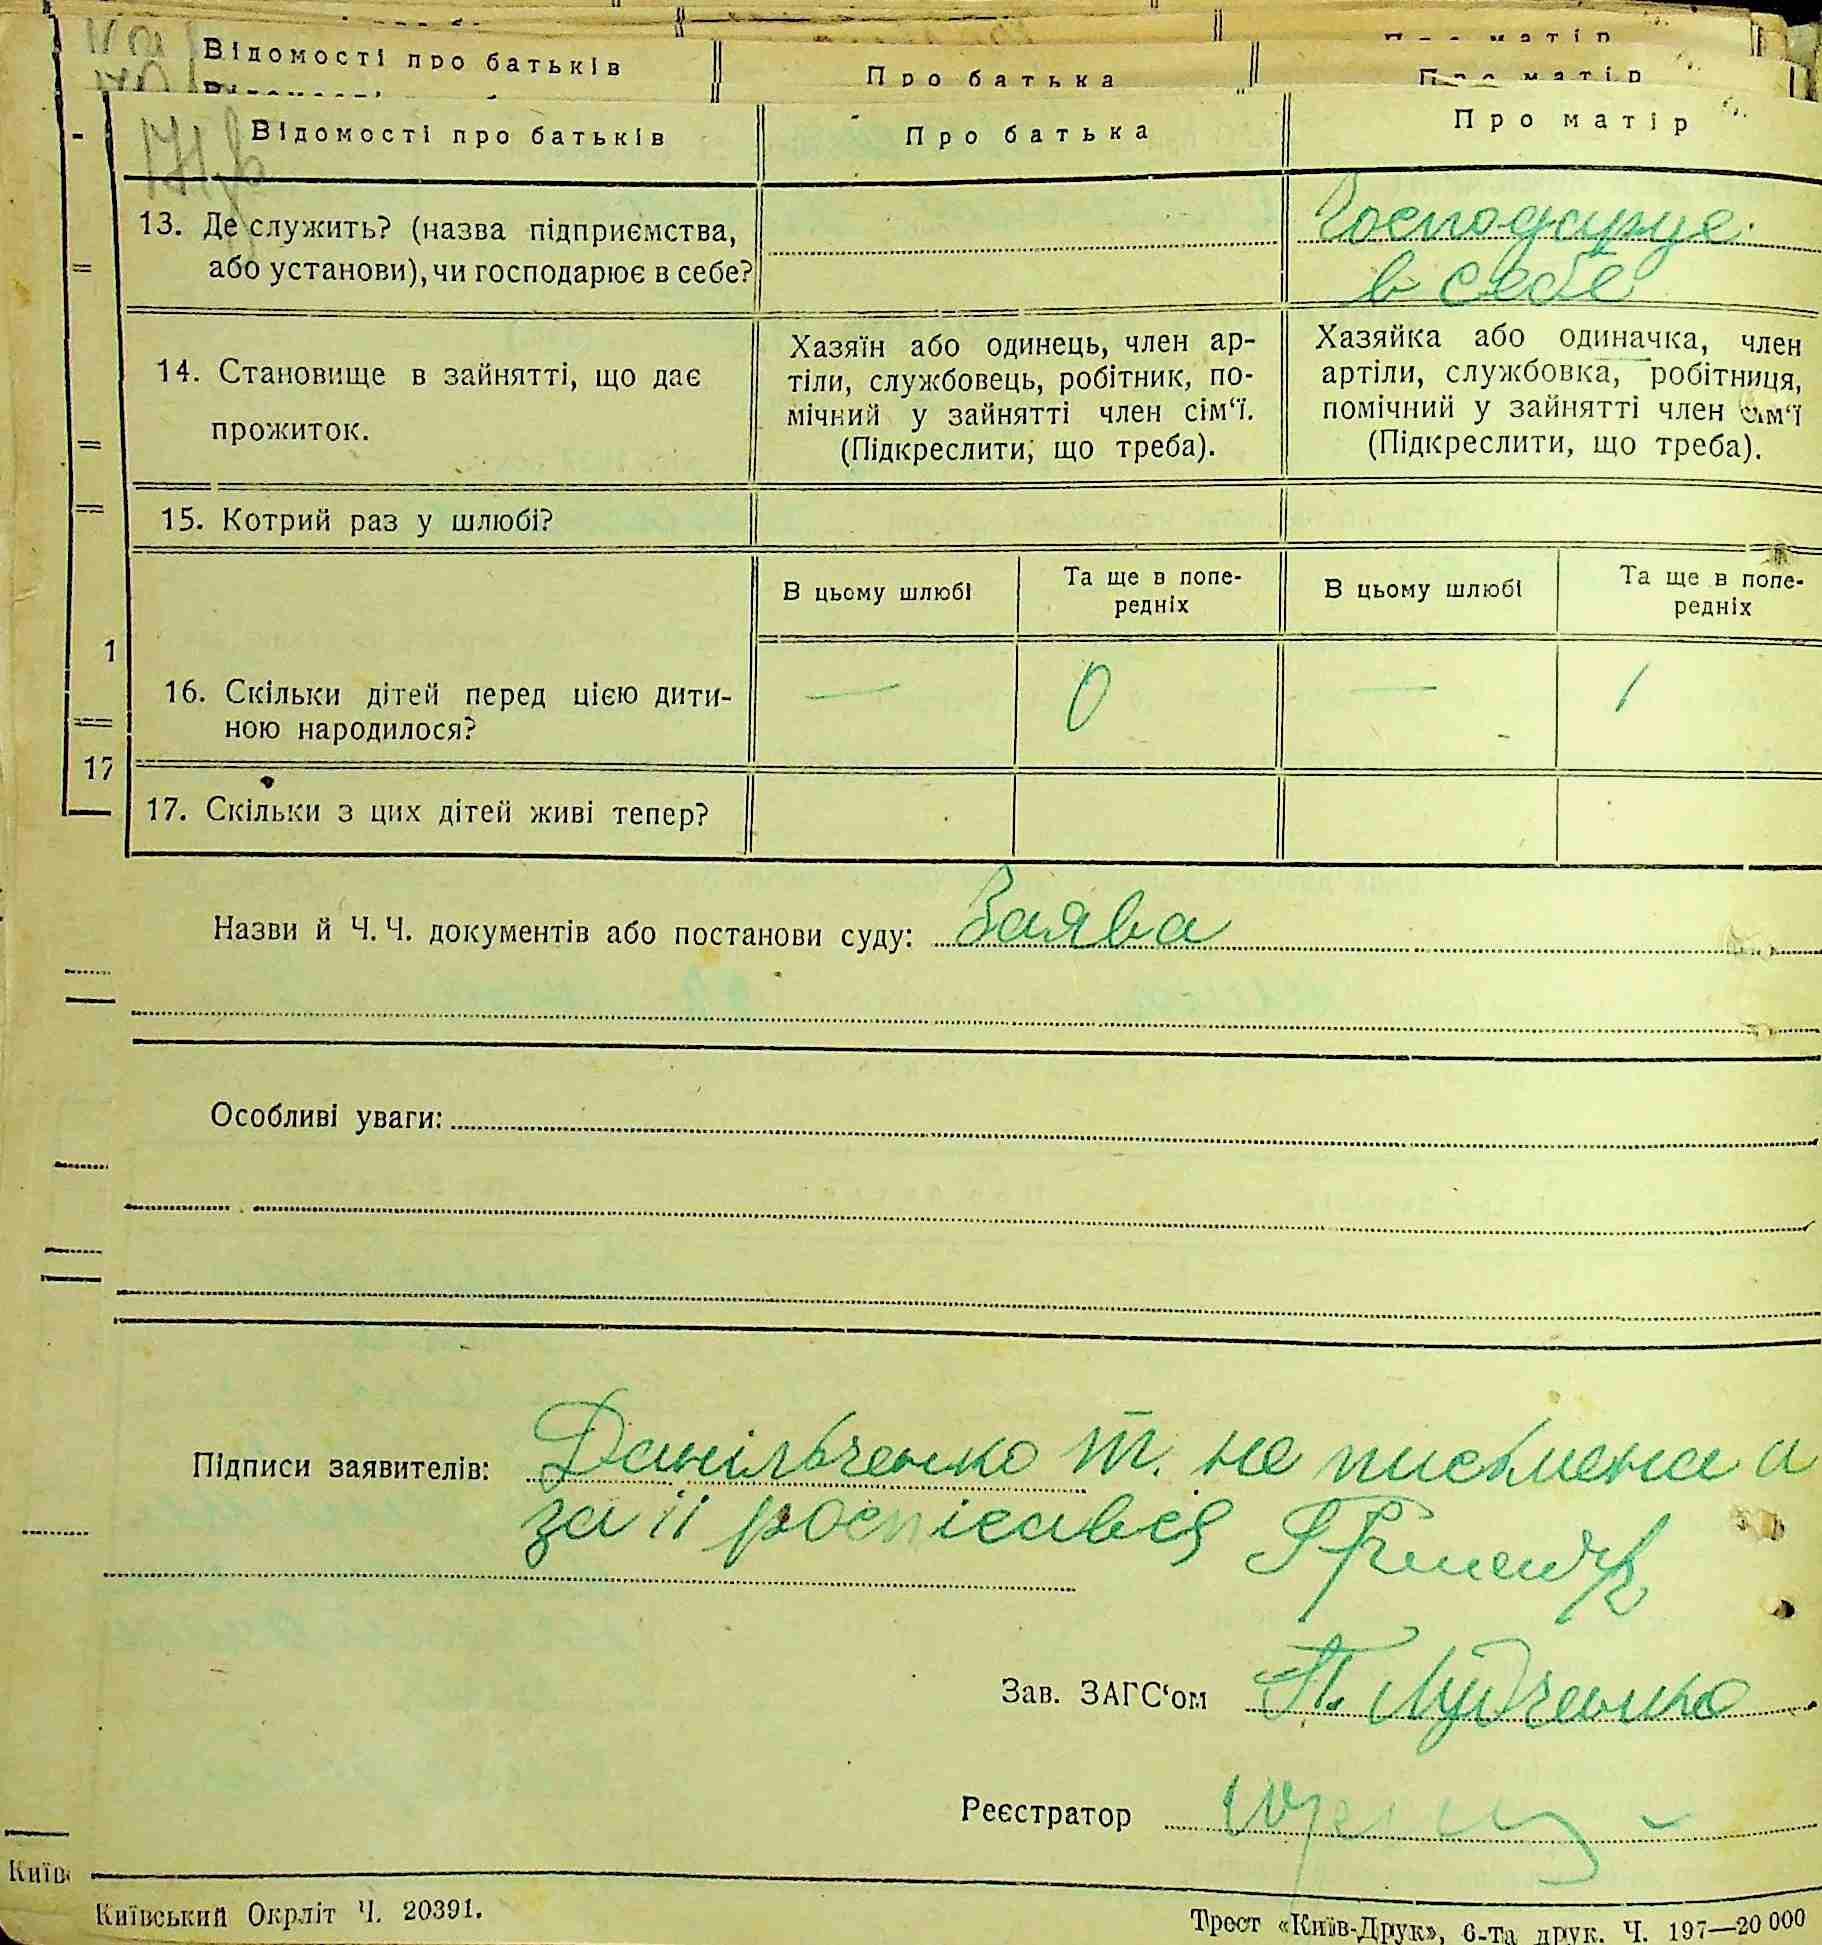 Відомості про батьків Про батька Про матір
Відомості про батьків Про батька Про матір
13. Де служить? (назва підприємства, або установи), чи господарює в себе?
Господарує
в себе
14. Становище в зайнятті, що дає прожиток.
Хазяїн або одинець, член ар-
тіли, службовець, робітник, по-
мічний у зайнятті член сім‘ї.
(Підкреслити, що треба).
Хазяйка або одиначка, член
артіли, службовка, робітниця,
помічний у зайнятті член сім‘ї
(Підкреслити, що треба).
15. Котрий раз у шлюбі?
В цьому шлюбі
Та ще в попе-
редніх
В цьому шлюбі
Та ще в попе-
редніх
1
16. Скільки дітей перед цією дити-
ною народилося?
— 0 — 1
17
17. Скільки з цих дітей живі тепер?
Назви й Ч. Ч. документів або постанови суду: Заява
Особливі уваги:
Підписи заявителів: Данільченко т. не письмена а
за її роспісався
Зав. ЗАГС‘ом
Реєстратор
Київ
Київський Окрліт Ч. 20391.
Трест «Київ-Друк», 6-та друк. Ч. 197—20 000